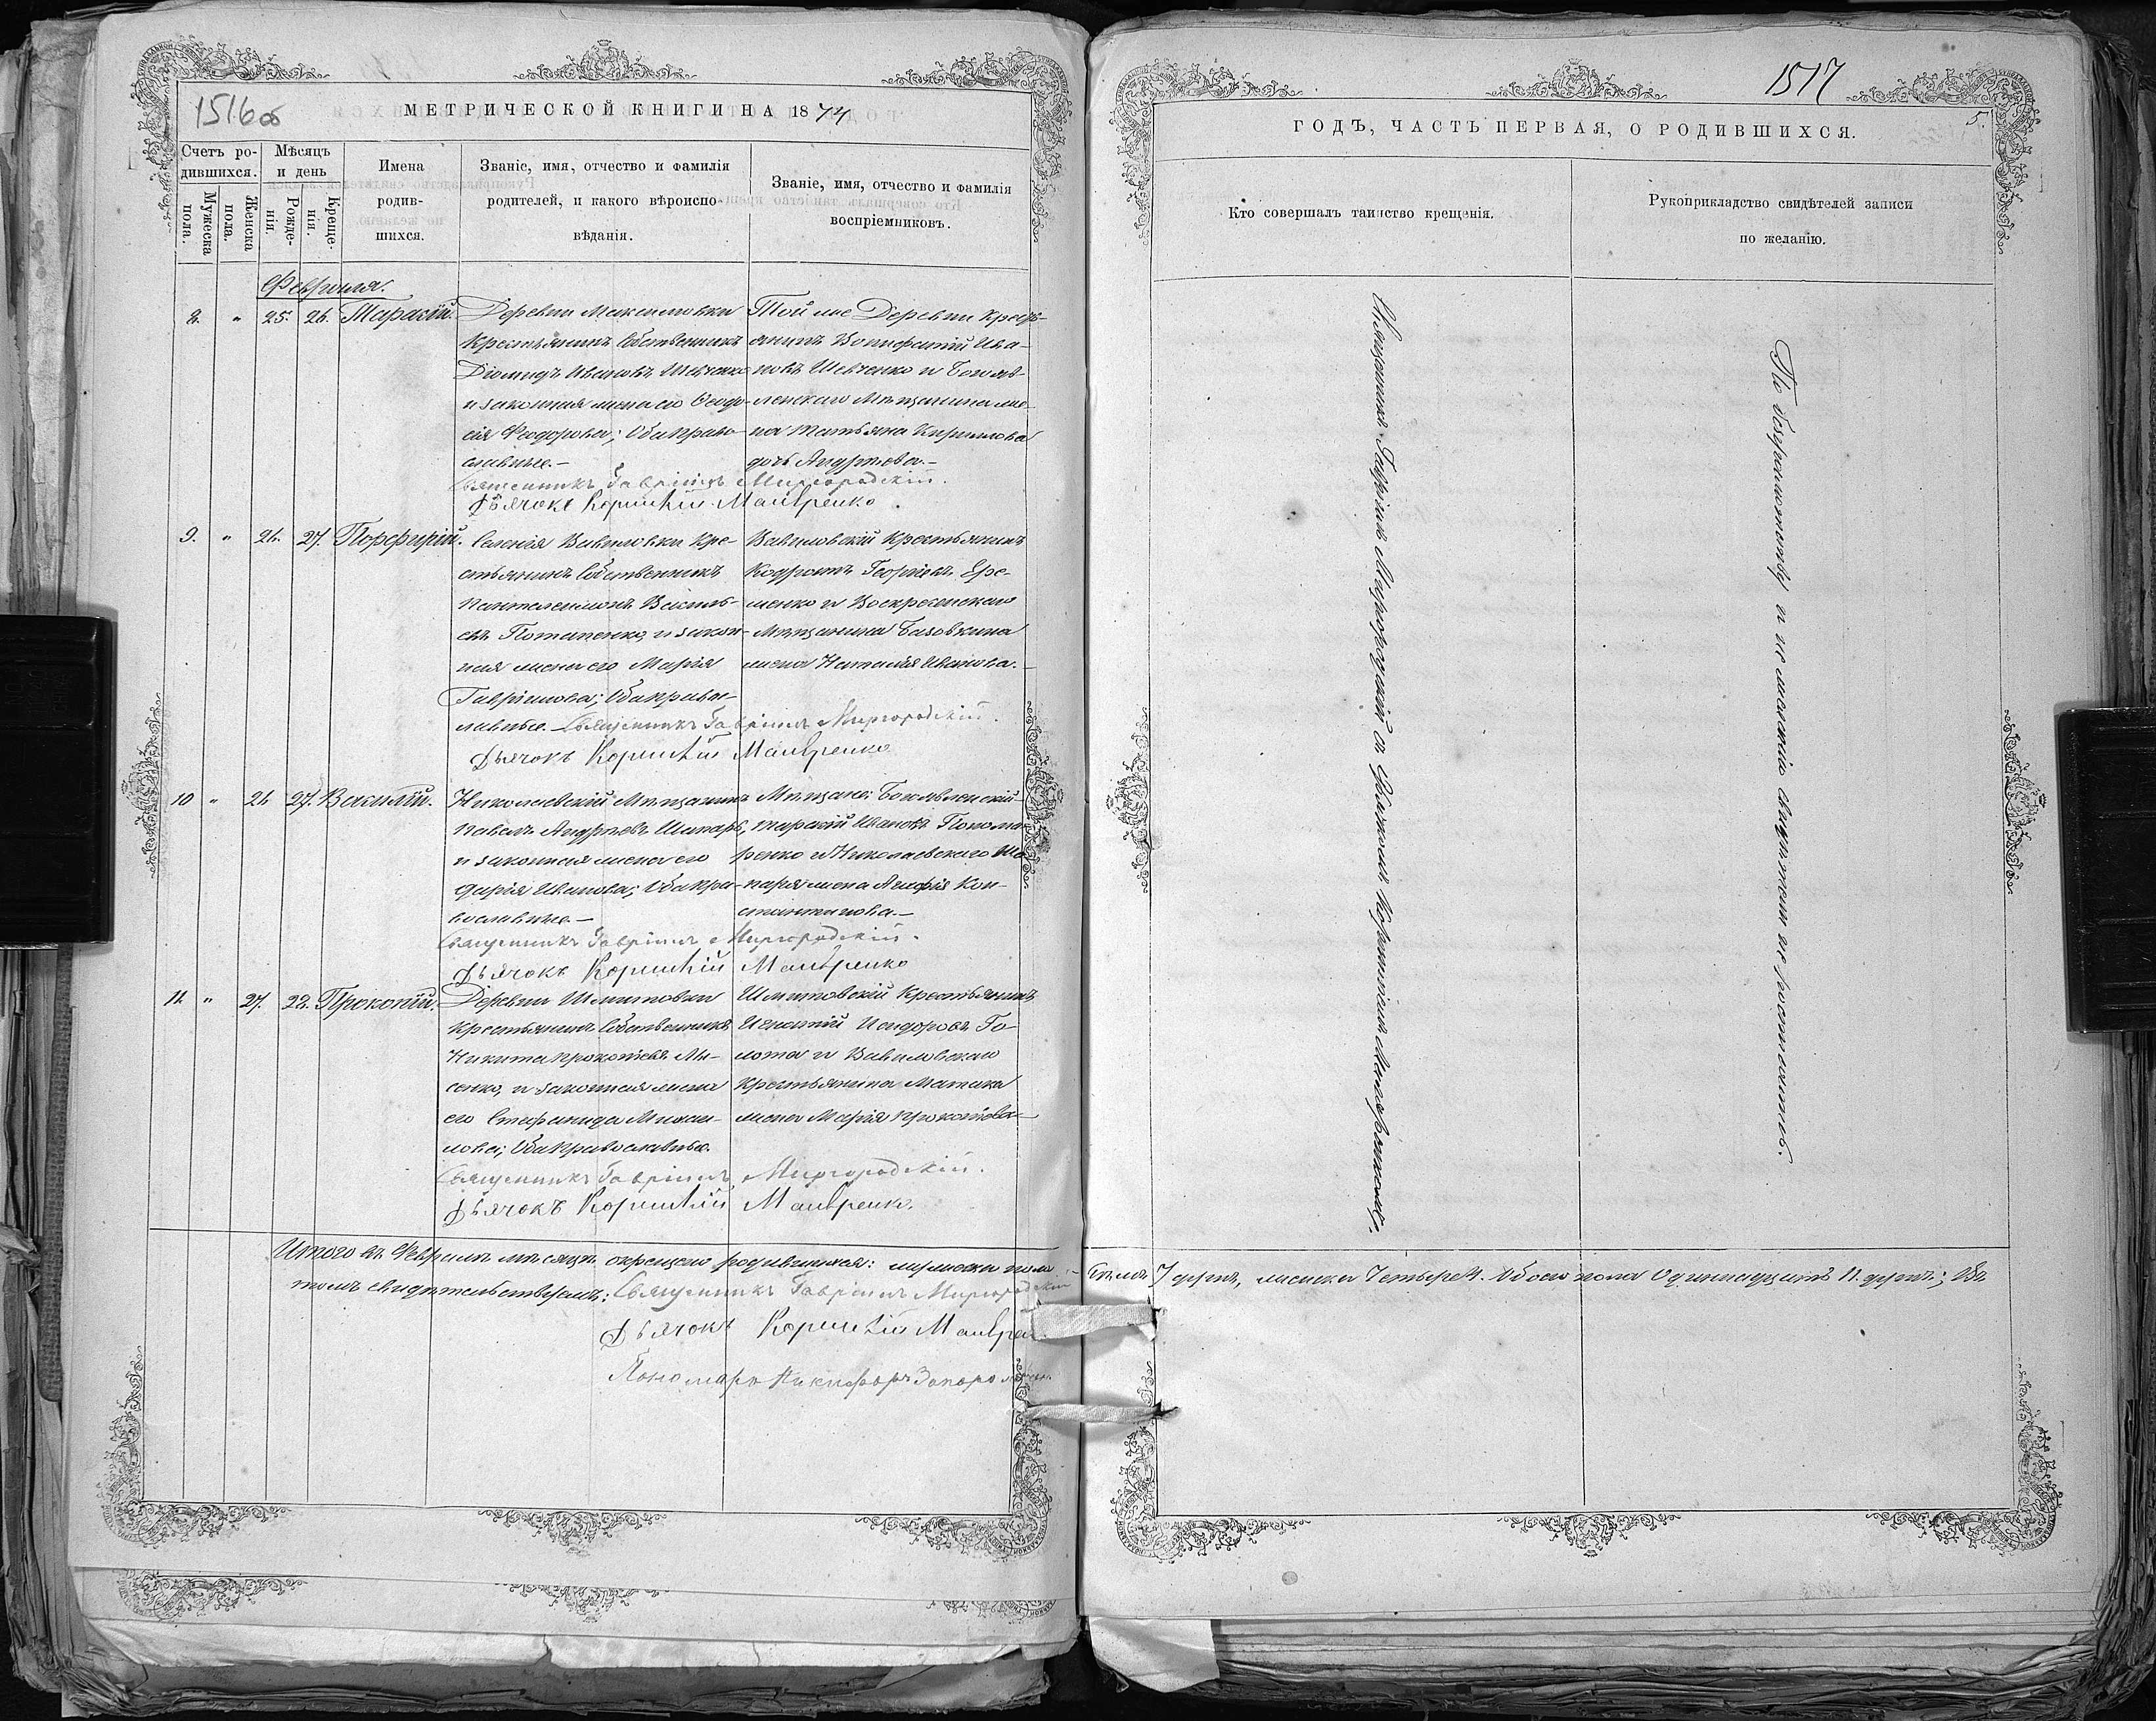 1516об
МЕТРИЧЕСКОЙ КНИГИ НА 1874
Счетъ ро-
дившихся.
Мужеска
пола.
Женска
пола.
Мѣсяцъ
и день
Рожде-
нія.
Креще-
нія.
Имена
родив-
шихся.
Званіе, имя, отчество и фамилія
родителей, и какого вѣроиспо-
вѣданія.
Званіе, имя, отчество и фамилія
воспріемниковъ.
Февраля.
8. " 25. 26. Тарасій.
Деревни Максимовки
Крестьянинъ Собственникъ
Діомидъ Ивановъ Шевченко
и законная жена его Ѳеодо-
сія Ѳеодорова; Оба право-
славные.-
Той же Деревни Кресть-
янинъ Вонифатій Ива-
новъ Шевченко и Богояв-
ленскаго Мѣщанина же-
на Татьяна Кирилова
дочь Андреева.-
Священникъ Гавріилъ Миргородскій.
Дьячокъ Корнилій Мавренко.
9. " 26. 27. Порфирій.
Селенія Вавиловки Кре-
стьянинъ Собственникъ
Пантелеимонъ Василь-
евъ Потапенко, и закон-
ная жена его Марія
Гавріилова; Оба правос-
лавные.-
Вавиловскій Крестьянинъ
Кодратъ Георгіевъ Ере-
менко и Воскресенскаго
Мѣщанина Базовкина
жена Наталія Иванова.-
Священникъ Гавріилъ Миргородскій.
Дьячокъ Корнилій Мавренко
10 " 26 27. Василій.
Николаевскій Мѣщанинъ
Павелъ Андреевъ Шапарь,
и законная жена его
Дарія Иванова; Оба пра-
вославные.-
Мѣщане: Богоявленскій-
Тарасій Ивановъ Понома-
ренко и Николаевскаго Ша-
паря жена Агафія Кон-
стантинова.-
Священникъ Гавріилъ Миргородскій.
Дьячокъ Корнилій Мавренко
11. " 27. 28. Прокопій.
Деревни Шмитовки
Крестьянинъ Собственникъ
Никита Прокопіевъ Лы-
сенко, и законная жена
его Стефанида Михаи-
лова; Оба православные.
Шмитовскій Крестьянинъ
Игнатій Исидоровъ Го-
лота и Вавиловскаго
Крестьянина Матика
жена Марія Прокопіева-
Священникъ Гавріилъ Миргородскій.
Дьячокъ Корнилій Мавренко.
Итого въ Февралѣ мѣсяцѣ окрещено родившихся: мужеска пола
томъ свидѣтельствуемъ: Священникъ Гавріилъ Миргородскій
Дьячокъ Корнилій Мавренко
Пономарь Никифоръ
1517
5.
ГОДЪ, ЧАСТЬ ПЕРВАЯ, О РОДИВШИХСЯ.
Кто совершалъ таинство крещенія.
Рукоприкладство свидѣтелей записи
по желанію.
Священникъ Гавріилъ Миргородскій съ Дьячкомъ Корниліемъ Мавренкомъ.
По безграмотству и не желанію свидѣтели не росписались.
Семь 7 душъ, женска Четыре 4. Обоего пола Одинадцать 11. душъ; Въ